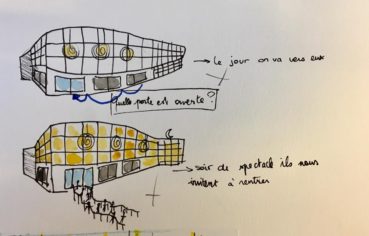 → Le jour on va vers eux
Quelle porte est ouverte ?
→ soir de spectacle ils nous
invitent à rentrer